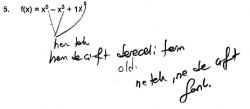 5. f(x) = x⁴ − x³ + 1x
hem tek
hem de çift dereceli terim
old.
ne tek, ne de çift
fonk.